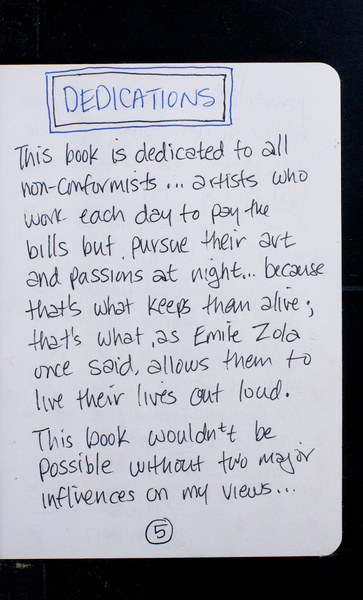 DEDICATIONS
This book is dedicated to all
non-conformists... artists who
work each day to pay the
bills but pursue their art
and passions at night... because
that's what keeps them alive;
that's what, as Emile Zola
once said, allows them to
live their lives out loud.
This book wouldn't be
possible without two major
influences on my views...
5